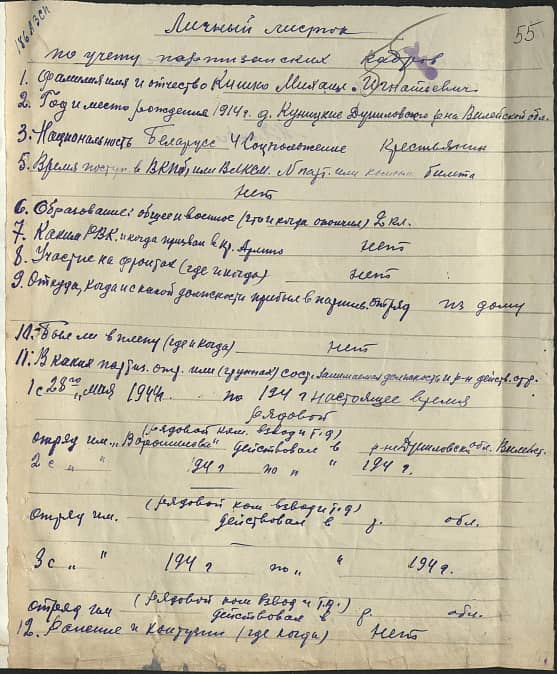 55
Личный листок
по учету партизанских кадров
1. Фамилия имя и отчество Кишко Михаил Игнатьевич
2. Год и место рождения 1914 г. д. Куницкие Дуниловского р-на Вилейской обл.
3. Национальность Беларусс 4 Соцположение Крестьянин
5. Время поступ. в ВКПб или ВЛКСМ. N парт. или комсом. билета
Нет
6. Образование: общее и военное (что и когда окончил) 2 кл.
7. Каким РВК. и когда призван в Кр. Армию Нет
8. Участие на фронтах (где и когда) Нет
9. Откуда, когда и с какой должности прибыл в партиз. отряд из дому
10. Был ли в плену (где и когда) Нет
11. В каких партиз. отр. или (группах) сост. занимаемая должность и р-н действ. отр.
1 с 28го „ мая 1944 г. по 194 г Настоящее время
рядовой
(рядовой ком. взвод и т.д)
отряд им. „Ворошилова" действовал в р-не Дуниловском обл. Вилейск.
2 с „ " 194 г по „ " 194 г.
(рядовой ком взвод и т.д)
отряд им. действовал в р. обл.
3 с „ " 194 г по „ " 194 г.
(рядовой ком взвод и т.д.)
отряд им действовал в р. обл.
12. Ранение и контузии (где когда) Нет